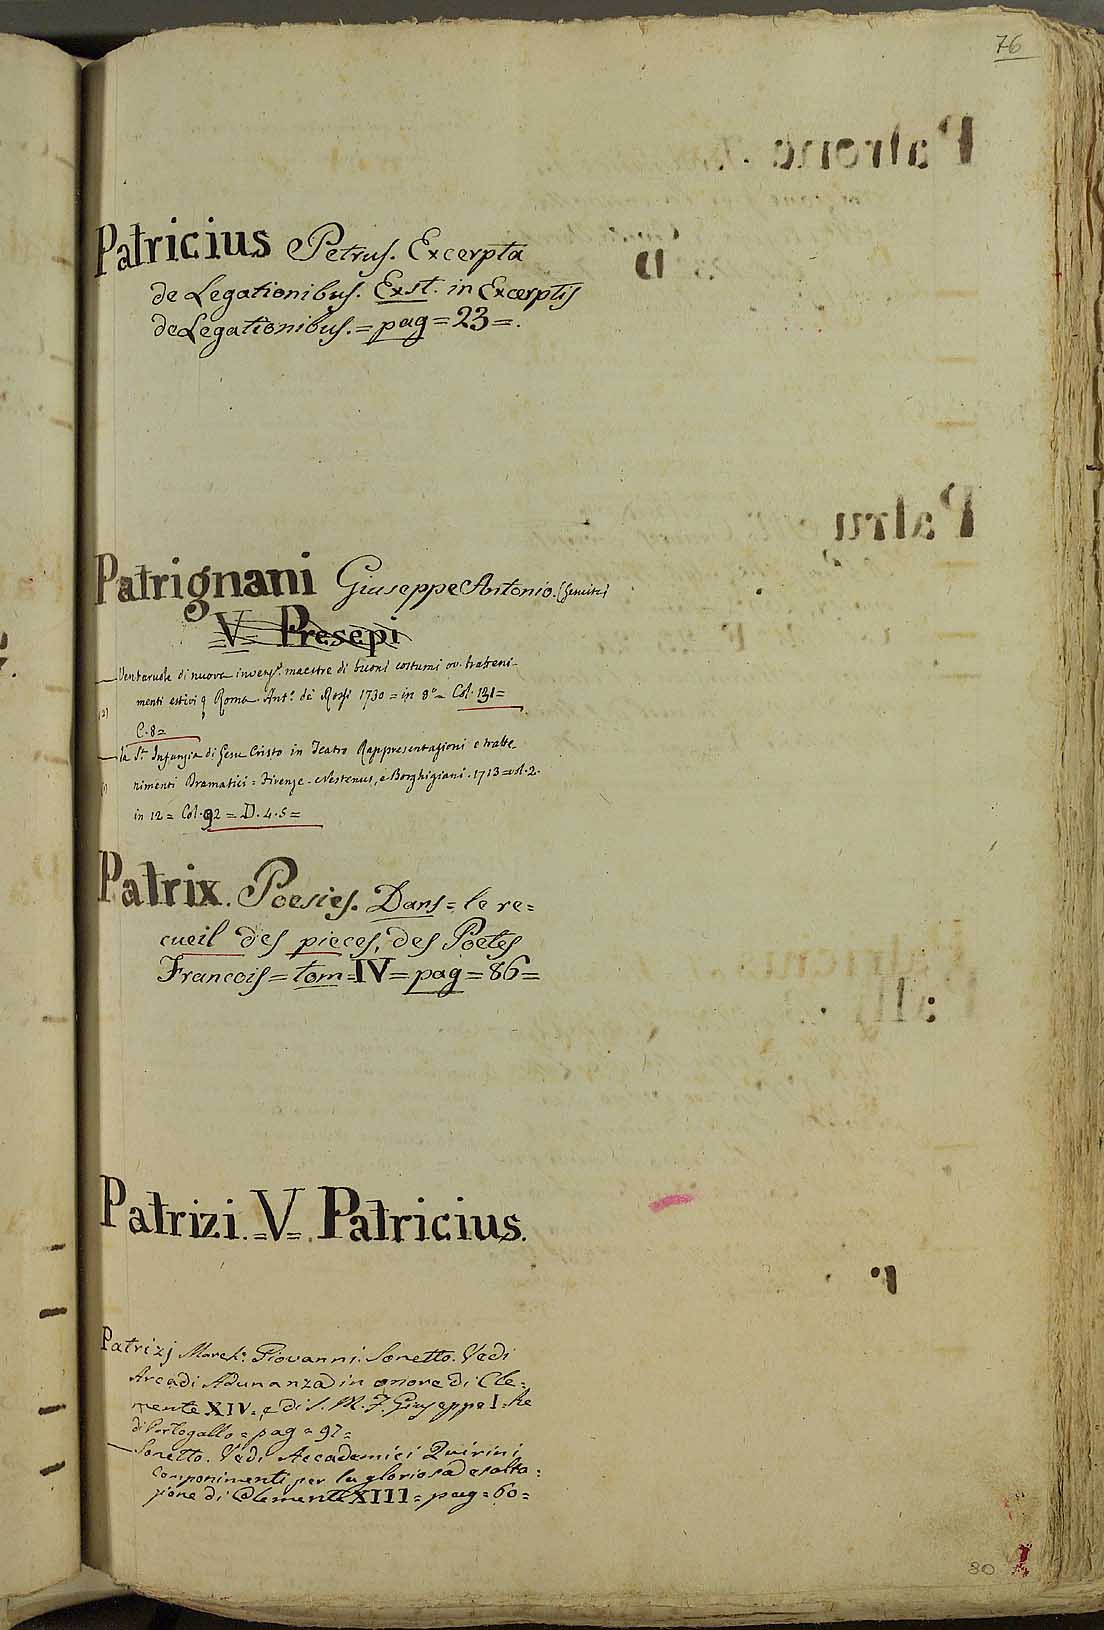 76
Patricius Petrus. Excerpta
de Legationibus. Exst. in Excerptis
de Legationibus. = pag = 23 =.
Patrignani Giuseppe Antonio. (Gesuita)
=V= Presepi
Ventarole di nuova invenzᵉ. maestre di buoni costumi ov. trateni-
menti estivi Roma. Antº. de Rossi 1730 = in 8º = Col. 131=
C. 8=
la Sᵗᵃ Infanzia di Gesu Cristo in Teatro Rappresentazioni e tratte
nimenti Dramatici = Firenze. Nestenus, e Borghigiani. 1713 = vol. 2.
in 12 = Col. 92 = D. 4. 5 =
Patrix. Poesies. Dans = le re=
cueil des pieces, des Poetes
Francois = tom = IV = pag = 86 =
Patrizi. =V=. Patricius.
Patrizj March: Giovanni. Sonetto. Vedi
Arcadi Adunanza in onore di Cle=
mente XIV. e di S. M. F. Giuseppe I. Re
di Portogallo = pag = 97 =
Sonetto. Vedi Accademici Quirini
Componimenti per la gloriosa esalta=
zione di Clemente XIII = pag = 60 =
80